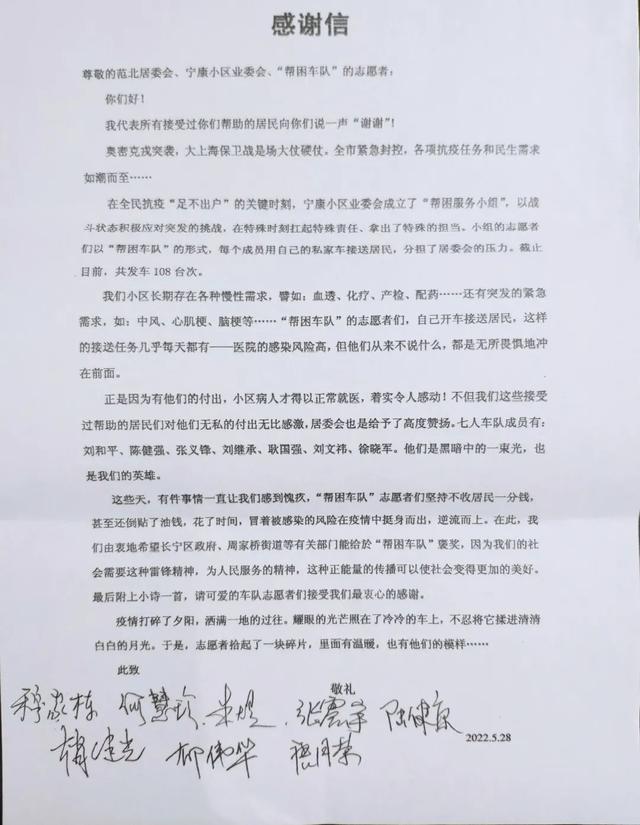 感谢信
尊敬的范北居委会、宁康小区业委会、“帮困车队”的志愿者：
你们好！
我代表所有接受过你们帮助的居民向你们说一声“谢谢”！
奥密克戎突袭，大上海保卫战是场大仗硬仗。全市紧急封控，各项抗疫任务和民生需求
如潮而至……
在全民抗疫“足不出户”的关键时刻，宁康小区业委会成立了“帮困服务小组”，以战
斗状态积极应对突发的挑战，在特殊时刻扛起特殊责任、拿出了特殊的担当。小组的志愿者
们以“帮困车队”的形式，每个成员用自己的私家车接送居民，分担了居委会的压力。截止
目前，共发车 108 台次。
我们小区长期存在各种慢性需求，譬如：血透、化疗、产检、配药……还有突发的紧急
需求，如：中风、心肌梗、脑梗等……“帮困车队”的志愿者们，自己开车接送居民，这样
的接送任务几乎每天都有——医院的感染风险高，但他们从来不说什么，都是无所畏惧地冲
在前面。
正是因为有他们的付出，小区病人才得以正常就医，着实令人感动！不但我们这些接受
过帮助的居民们对他们无私的付出无比感激，居委会也是给予了高度赞扬。七人车队成员有：
刘和平、陈健强、张义锋、刘继承、耿国强、刘文祎、徐晓军。他们是黑暗中的一束光，也
是我们的英雄。
这些天，有件事情一直让我们感到愧疚，“帮困车队”志愿者们坚持不收居民一分钱，
甚至还倒贴了油钱，花了时间，冒着被感染的风险在疫情中挺身而出，逆流而上。在此，我
们由衷地希望长宁区政府、周家桥街道等有关部门能给於“帮困车队”褒奖，因为我们的社
会需要这种雷锋精神，为人民服务的精神，这种正能量的传播可以使社会变得更加的美好。
最后附上小诗一首，请可爱的车队志愿者们接受我们最衷心的感谢。
疫情打碎了夕阳，洒满一地的过往。耀眼的光芒照在了冷冷的车上，不忍将它揉进清清
白白的月光。于是，志愿者拾起了一块碎片，里面有温暖，也有他们的模样……
此致
敬礼
穆家栋 何慧珍 张震宇 陆健康
2022.5.28
柳伟华